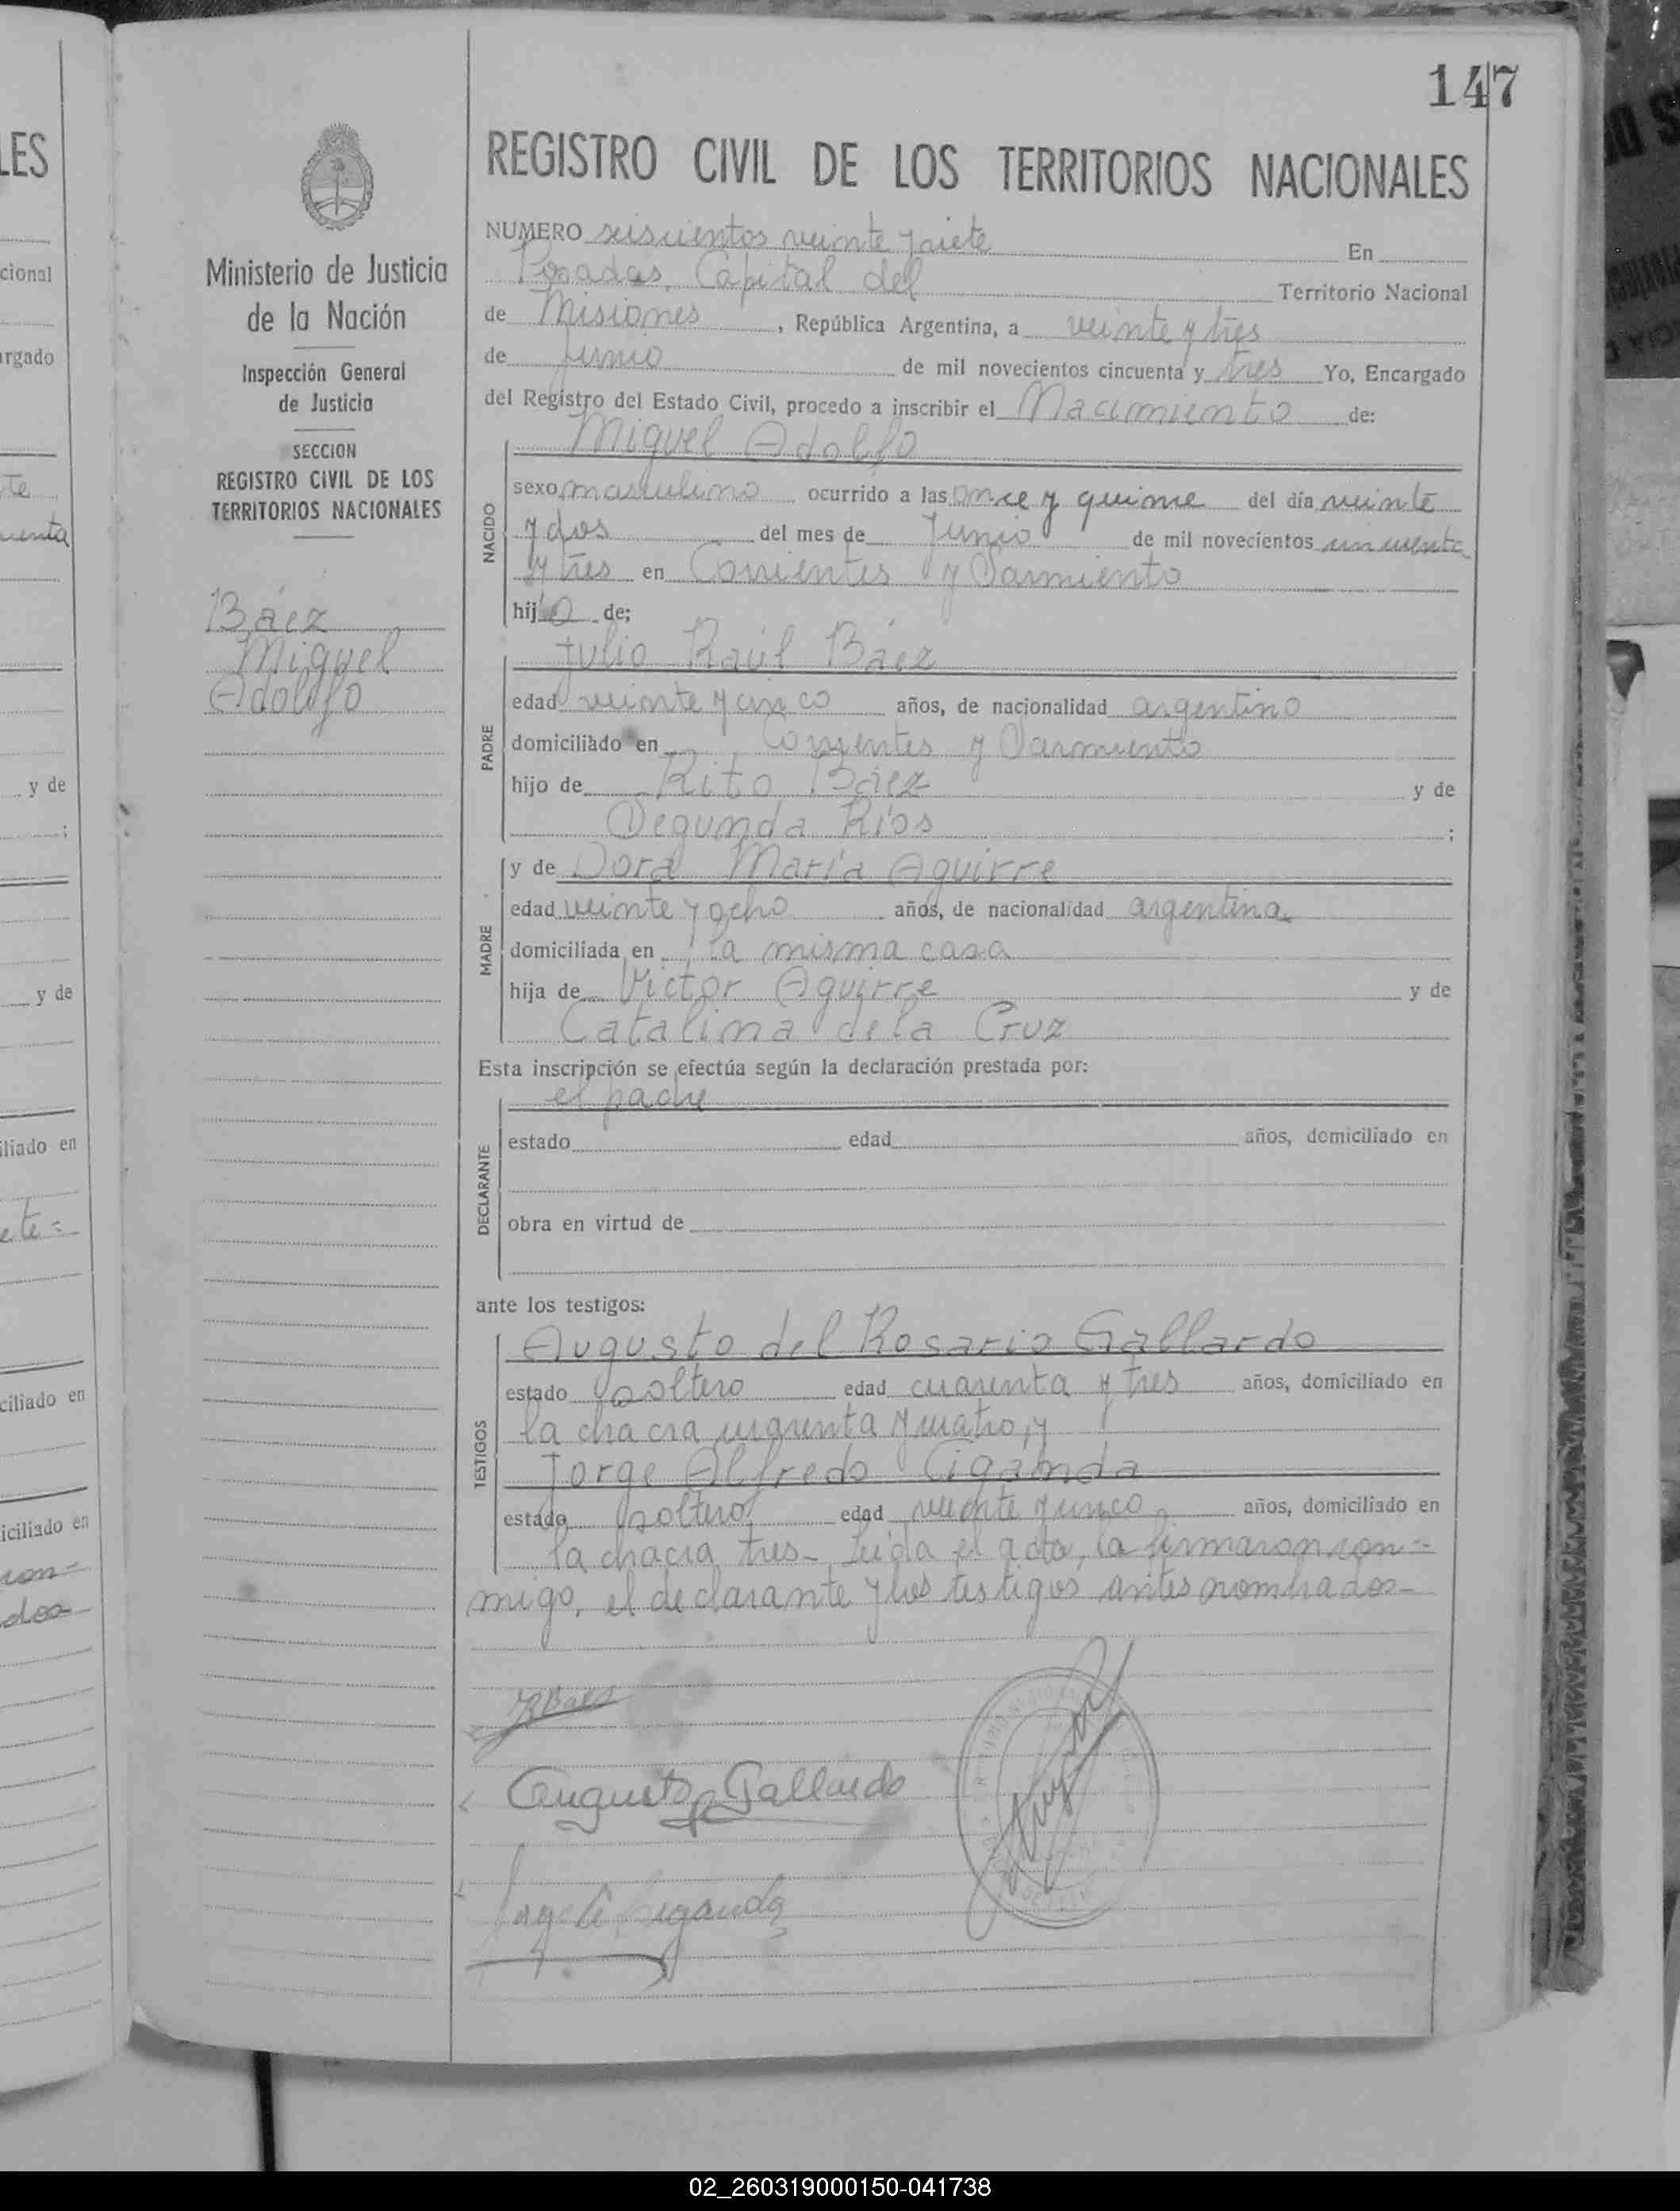 147
REGISTRO CIVIL DE LOS TERRITORIOS NACIONALES
Ministerio de Justicia
de la Nación
Inspección General
de Justicia
SECCION
REGISTRO CIVIL DE LOS
TERRITORIOS NACIONALES
Báez
Miguel
Adolfo
NUMERO seiscientos veinte y siete En
Posadas, Capital del Territorio Nacional
de Misiones, República Argentina, a veinte y tres
de Junio de mil novecientos cincuenta y tres Yo, Encargado
del Registro del Estado Civil, procedo a inscribir el Nacimiento de:
Miguel Adolfo
NACIDO
sexo masculino ocurrido a las once y quince del día veinte
y dos del mes de Junio de mil novecientos cincuenta
y tres en Corrientes y Sarmiento
hijo de;
Julio Raúl Báez
PADRE
edad veinte y cinco años, de nacionalidad argentino
domiciliado en Corrientes y Sarmiento
hijo de Rito Báez y de
Segunda Ríos ;
y de Dora María Aguirre
MADRE
edad veinte y ocho años, de nacionalidad argentina
domiciliada en la misma casa
hija de Víctor Aguirre y de
Catalina de la Cruz
Esta inscripción se efectúa según la declaración prestada por:
el padre
DECLARANTE
estado edad años, domiciliado en
obra en virtud de
ante los testigos:
Augusto del Rosario Gallardo
TESTIGOS
estado soltero edad cuarenta y tres años, domiciliado en
la chacra cuarenta y cuatro, y
Jorge Alfredo Ciganda
estado soltero edad veinte y cinco años, domiciliado en
la chacra tres- Leída el acta, la firmaron con-
migo, el declarante y los testigos antes nombrados-
JRBaez
Augusto Gallardo
Jorge A Ciganda
LES
cional
argado
te
cuenta
y de
;
y de
iliado en
ete=
ciliado en
iciliado en
con=
dos-
02_260319000150-041738